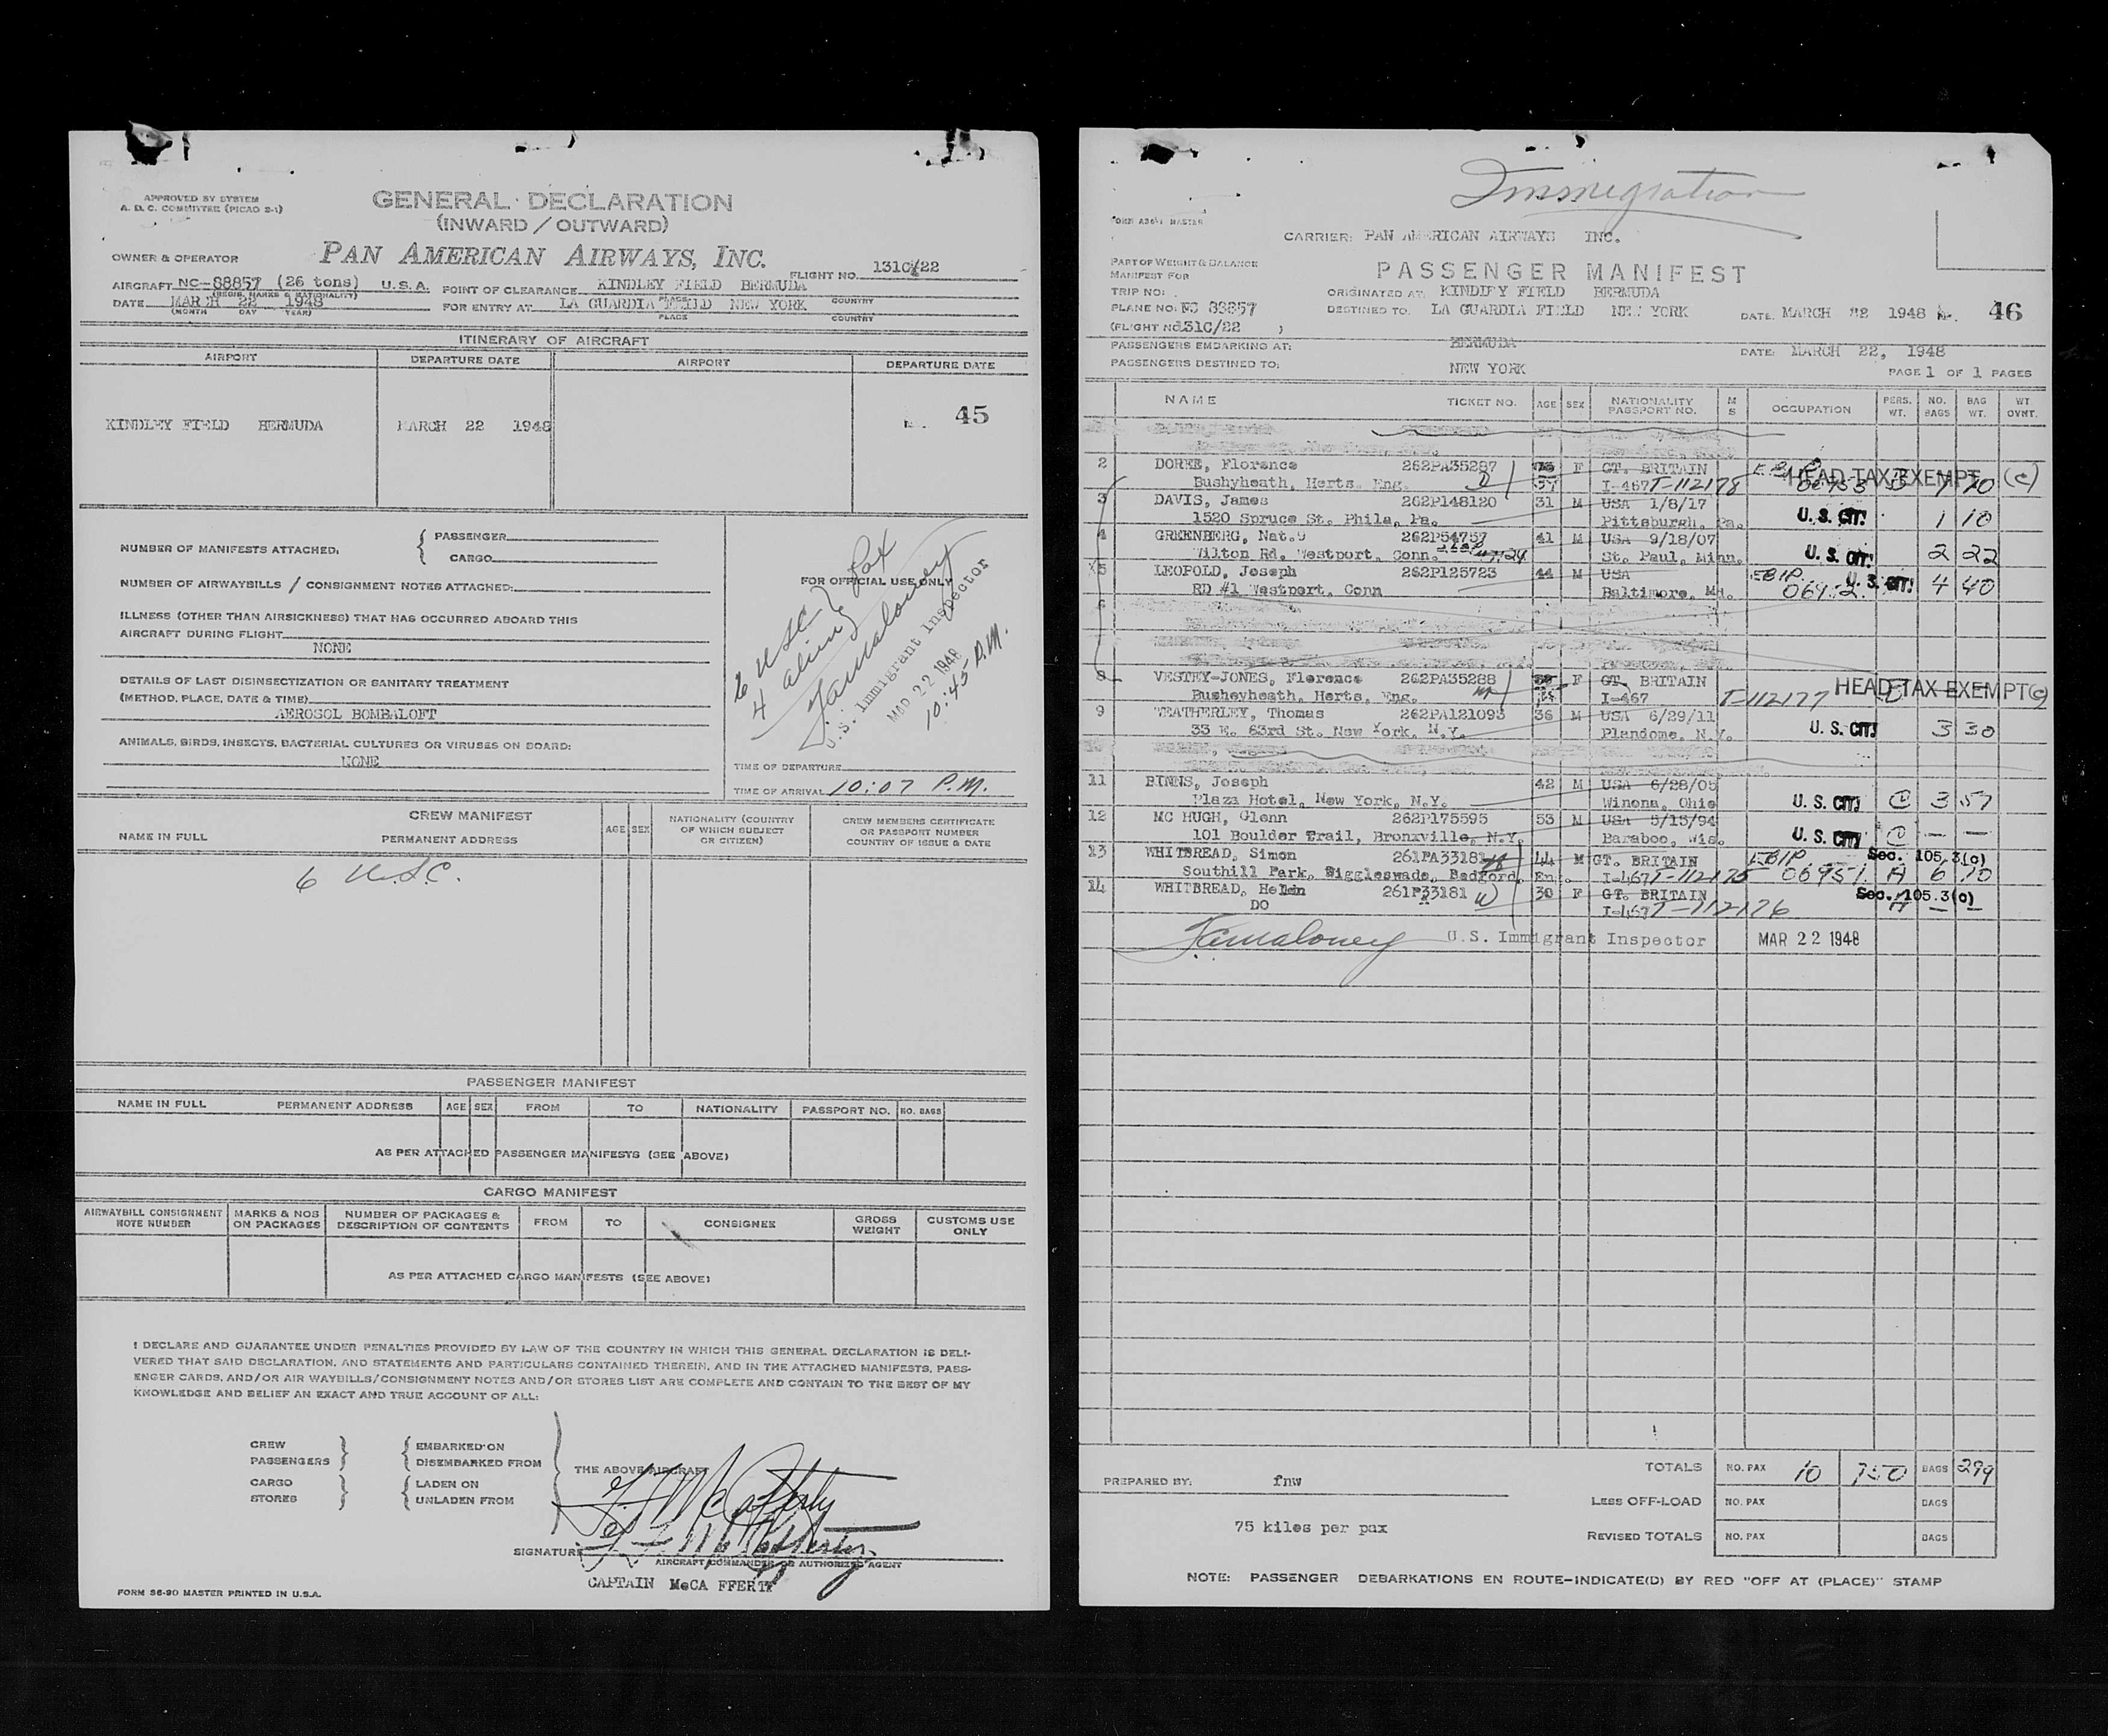 APPROVED BY SYSTEM
A. D. C. COMMITTEE (PICAO 2-1)
GENERAL DECLARATION
(INWARD / OUTWARD)
OWNER & OPERATOR PAN AMERICAN AIRWAYS, INC.
FLIGHT NO. 131C/22
AIRCRAFT NC-88857 (26 tons) U.S.A. POINT OF CLEARANCE KINDLEY FIELD BERMUDA
(REGIS. MARKS & NATIONALITY) PLACE COUNTRY
DATE MARCH 22 1948 FOR ENTRY AT LA GUARDIA FIELD NEW YORK
(MONTH DAY YEAR) PLACE COUNTRY
ITINERARY OF AIRCRAFT
AIRPORT DEPARTURE DATE AIRPORT DEPARTURE DATE
45
KINDLEY FIELD BERMUDA MARCH 22 1948
NUMBER OF MANIFESTS ATTACHED: { PASSENGER
CARGO
NUMBER OF AIRWAYBILLS / CONSIGNMENT NOTES ATTACHED:
ILLNESS (OTHER THAN AIRSICKNESS) THAT HAS OCCURRED ABOARD THIS
AIRCRAFT DURING FLIGHT
NONE
DETAILS OF LAST DISINSECTIZATION OR SANITARY TREATMENT
(METHOD, PLACE, DATE & TIME)
AEROSOL BOMBALOFT
ANIMALS, BIRDS, INSECTS, BACTERIAL CULTURES OR VIRUSES ON BOARD:
NONE
FOR OFFICIAL USE ONLY
6 USC } Pax
4 alien
U.S. Immigrant Inspector
MAR 22 1948
10:45 P.M.
TIME OF DEPARTURE
TIME OF ARRIVAL 10:07 P.M.
CREW MANIFEST
NAME IN FULL PERMANENT ADDRESS AGE SEX NATIONALITY (COUNTRY OF WHICH SUBJECT OR CITIZEN) CREW MEMBERS CERTIFICATE OR PASSPORT NUMBER COUNTRY OF ISSUE & DATE
6 U.S.C.
PASSENGER MANIFEST
NAME IN FULL PERMANENT ADDRESS AGE SEX FROM TO NATIONALITY PASSPORT NO. NO. BAGS
AS PER ATTACHED PASSENGER MANIFESTS (SEE ABOVE)
CARGO MANIFEST
AIRWAYBILL CONSIGNMENT NOTE NUMBER MARKS & NOS ON PACKAGES NUMBER OF PACKAGES & DESCRIPTION OF CONTENTS FROM TO CONSIGNEE GROSS WEIGHT CUSTOMS USE ONLY
AS PER ATTACHED CARGO MANIFESTS (SEE ABOVE)
I DECLARE AND GUARANTEE UNDER PENALTIES PROVIDED BY LAW OF THE COUNTRY IN WHICH THIS GENERAL DECLARATION IS DELI-
VERED THAT SAID DECLARATION, AND STATEMENTS AND PARTICULARS CONTAINED THEREIN, AND IN THE ATTACHED MANIFESTS, PASS-
ENGER CARDS, AND/OR AIR WAYBILLS/CONSIGNMENT NOTES AND/OR STORES LIST ARE COMPLETE AND CONTAIN TO THE BEST OF MY
KNOWLEDGE AND BELIEF AN EXACT AND TRUE ACCOUNT OF ALL:
CREW } { EMBARKED ON
PASSENGERS DISEMBARKED FROM
THE ABOVE AIRCRAFT
CARGO } { LADEN ON
STORES UNLADEN FROM
SIGNATURE
AIRCRAFT COMMANDER OR AUTHORIZED AGENT
CAPTAIN McCA FFERTY
FORM 86-90 MASTER PRINTED IN U.S.A.
Immigration
CARRIER: PAN AMERICAN AIRWAYS INC.
PART OF WEIGHT & BALANCE
MANIFEST FOR
PASSENGER MANIFEST
TRIP NO: ORIGINATED AT: KINDLEY FIELD BERMUDA
PLANE NO: NC 88857 DESTINED TO: LA GUARDIA FIELD NEW YORK DATE: MARCH 22 1948 46
(FLIGHT NO. 131C/22 )
PASSENGERS EMBARKING AT: BERMUDA DATE: MARCH 22, 1948
PASSENGERS DESTINED TO: NEW YORK PAGE 1 OF 1 PAGES
NAME TICKET NO. AGE SEX NATIONALITY PASSPORT NO. M S OCCUPATION PERS. WT. NO. BAGS BAG WT. WT OVNT.
2 DOREE, Florence 262PA35287 F GT. BRITAIN HEAD TAX EXEMPT (c)
Bushyheath, Herts. Eng. 37 I-467 T-112178
3 DAVIS, James 262P148120 31 M USA 1/8/17 U.S. CIT. 1 10
1520 Spruce St. Phila, Pa. Pittsburgh, Pa.
4 GREENBERG, Nat. 262P54757 41 M USA 9/18/07 U.S. CIT. 2 22
Wilton Rd. Westport, Conn. St. Paul, Minn.
5 LEOPOLD, Joseph 262P125723 44 M USA U.S. CIT. 4 40
RD #1 Westport, Conn Baltimore, Md.
6
8 VESTEY-JONES, Florence 262PA35288 F GT. BRITAIN HEAD TAX EXEMPT (c)
Busheyheath, Herts, Eng. I-467 T-112177
9 WEATHERLEY, Thomas 262PA121093 36 M USA 6/29/11 U.S. CIT. 3 30
33 E. 63rd St. New York, N.Y. Plandome, N.Y.
11 BINNS, Joseph 42 M USA 6/28/05 U.S. CIT. C 3 57
Plaza Hotel, New York, N.Y. Winona, Ohio
12 MC HUGH, Glenn 262P175595 53 M USA 5/15/94 U.S. CIT. C — —
101 Boulder Trail, Bronxville, N.Y. Baraboo, Wis.
13 WHITBREAD, Simon 261PA33181 44 M GT. BRITAIN EBIP. Sec. 105.3(c)
Southill Park, Biggleswade, Bedford, Eng. I-467 T-112175 06951 A 6 70
14 WHITBREAD, Helen 261P33181 30 F GT. BRITAIN Sec. 105.3(c)
DO I-467 T-112176 A — —
U.S. Immigrant Inspector MAR 22 1948
TOTALS NO. PAX 10 750 BAGS 299
PREPARED BY: fnw
LESS OFF-LOAD NO. PAX BAGS
75 kilos per pax
REVISED TOTALS NO. PAX BAGS
NOTE: PASSENGER DEBARKATIONS EN ROUTE-INDICATE(D) BY RED "OFF AT (PLACE)" STAMP